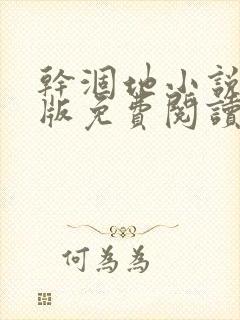 幹涸地小說
版免費閱讀
何為為